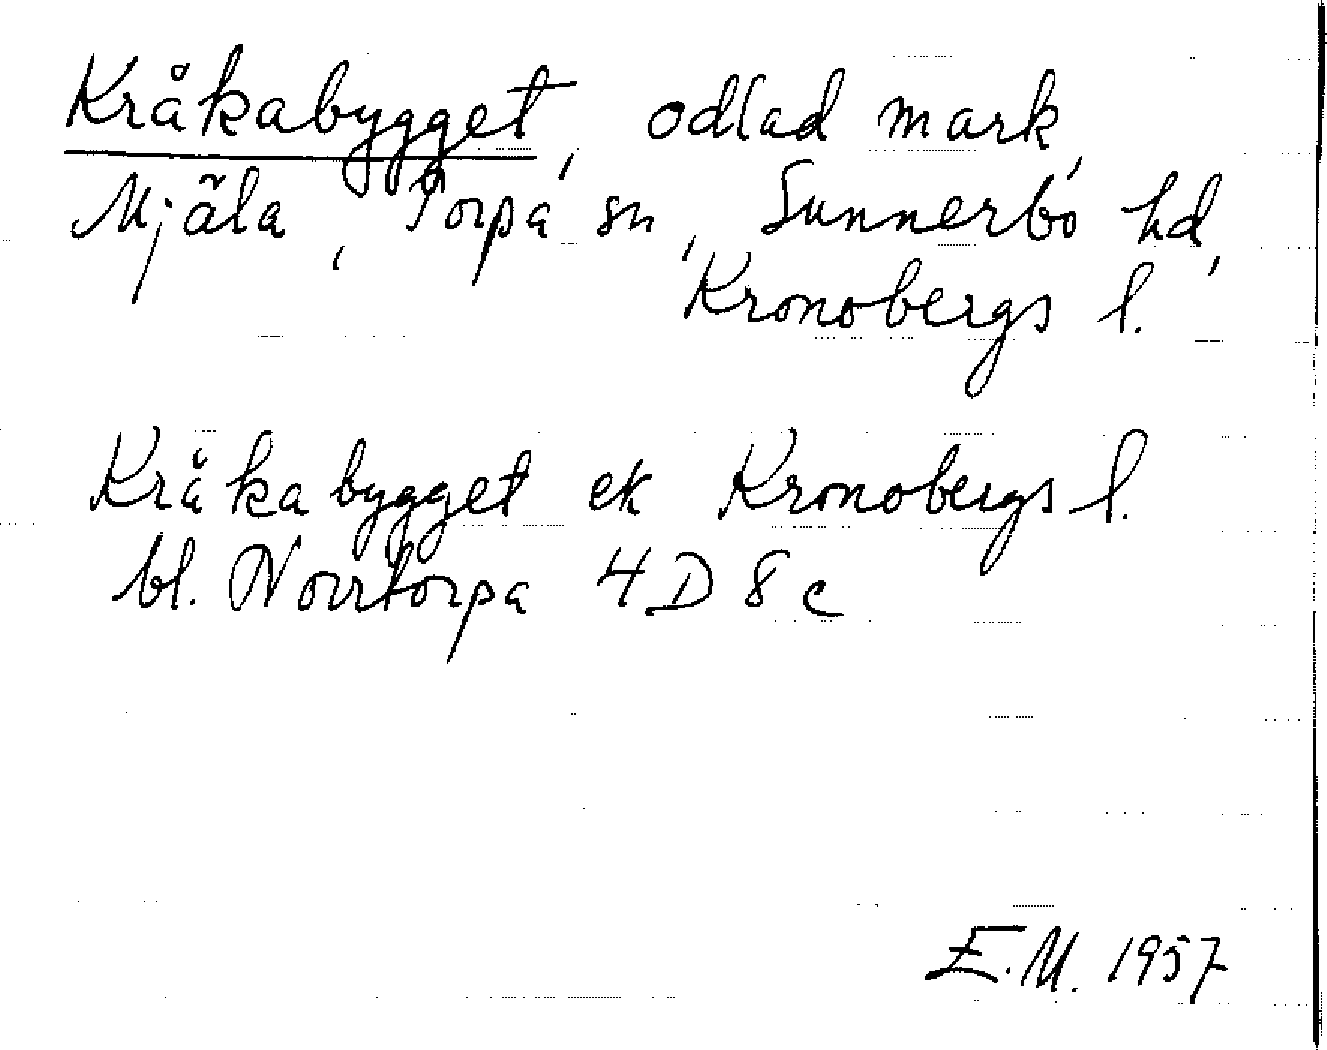 Kråkabygget, odlad mark,
Mjäla, Torpa sn, Sunnerbo hd,
Kronobergs l.
Kråkabygget ek Kronobergs l.
bl. Norrtorpa 4D8c
E.M. 1957